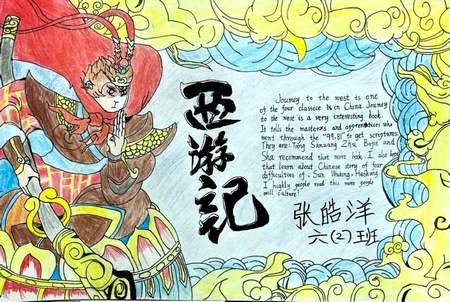 西游记
Journey to the west is one
of the four classics in China. Journey
to the west is a very interesting book.
It tells the masters and apprentices who
went through the "9981" to get scriptures
They are: Tang Sanzang Zhu Bajie and
Sha recommend that more book. I also
that learn about Chinese story of four
difficulties of. Sun Wukong
I highly people read this more people
will Culture!
张皓洋
六(2)班